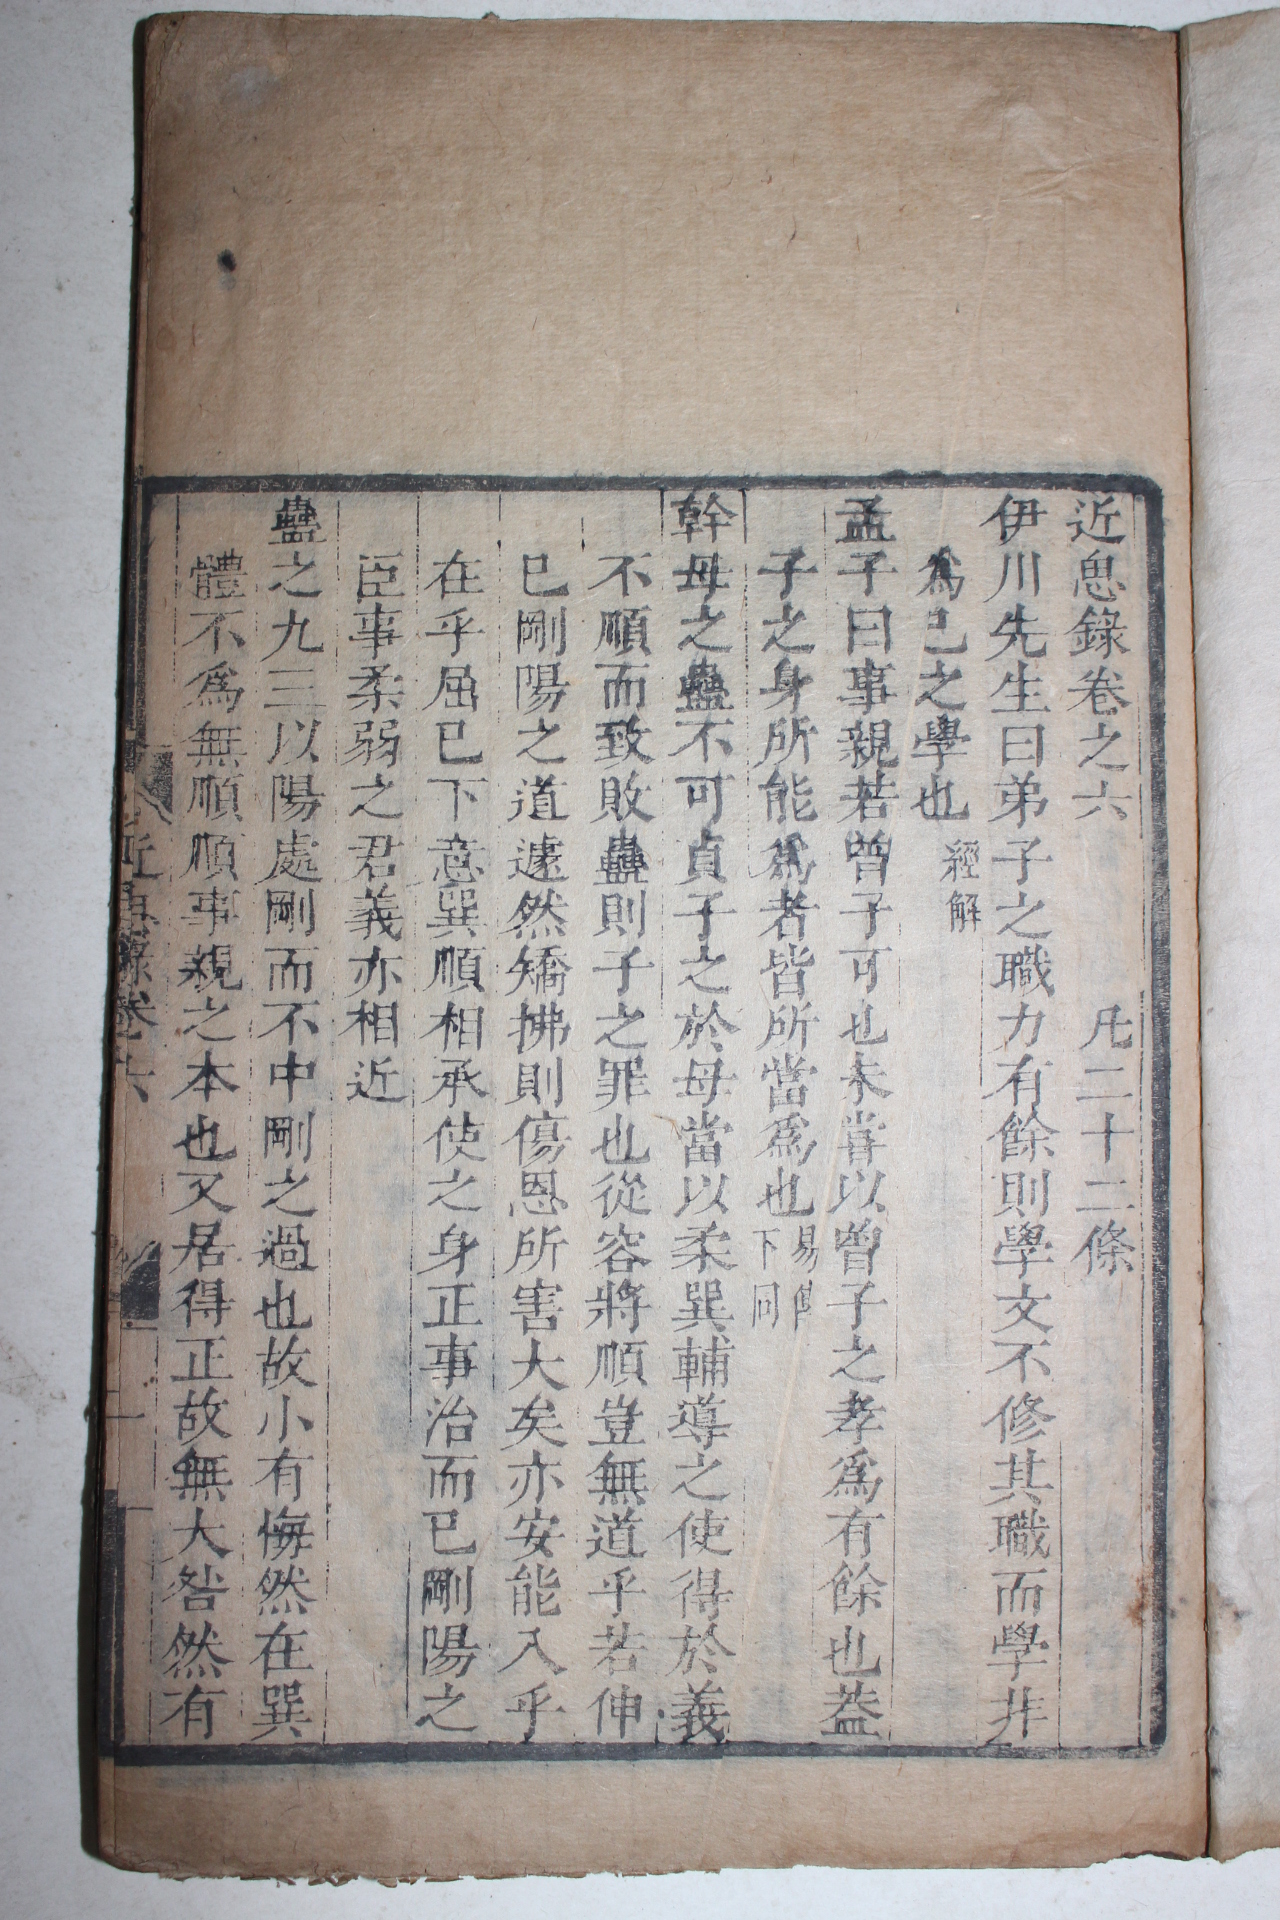 近思錄卷之六 凡二十二條
伊川先生曰弟子之職力有餘則學文不修其職而學非
爲己之學也 經解
孟子曰事親若曾子可也未嘗以曾子之孝爲有餘也葢
子之身所能爲者皆所當爲也 易傳 下同
幹母之蠱不可貞子之於母當以柔巽輔導之使得於義
不順而致敗蠱則子之罪也從容將順豈無道乎若伸
己剛陽之道遽然矯拂則傷恩所害大矣亦安能入乎
在乎屈己下意巽順相承使之身正事治而已剛陽之
臣事柔弱之君義亦相近
蠱之九三以陽處剛而不中剛之過也故小有悔然在巽
體不爲無順順事親之本也又居得正故無大咎然有
近思錄卷六 一